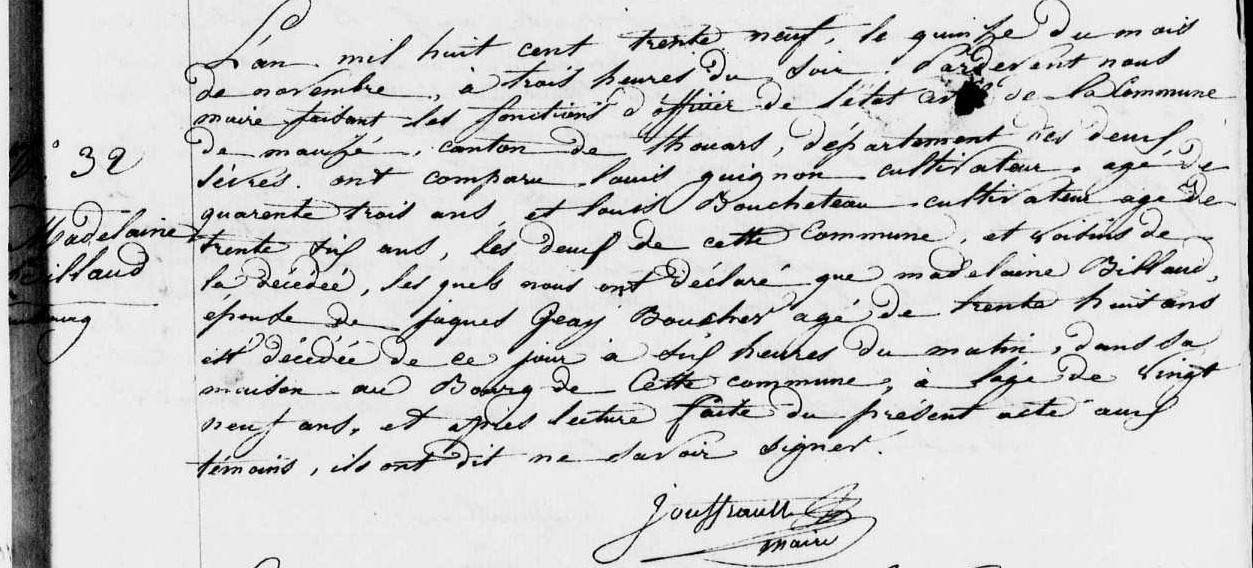 L'an mil huit cent trente neuf, le quinze du mois
de novembre, à trois heures du soir. Pardevent nous
maire faisant les fonctions d'officier de l'état civil de la Commune
de mauzé, canton de thouars, département des deux
N° 39
sèvres. ont comparu louis guignon cultivateur agé de
quarente trois ans, et louis Boucheteau cultivateur agé de
Madelaine
trente six ans, les deux de cette Commune, et voisins de
Billaud
la décédée, les quels nous ont déclaré que madelaine Billaud,
épouse de jaques Geay Boucher agé de trente huit ans
est décédée de ce jour à six heures du matin, dans sa
maison au Bourg de Cette commune, à l'age de vingt
neuf ans, et apres lecture faite du présent acte aux
témoins, ils ont dit ne savoir signer.
Jouffrault
maire